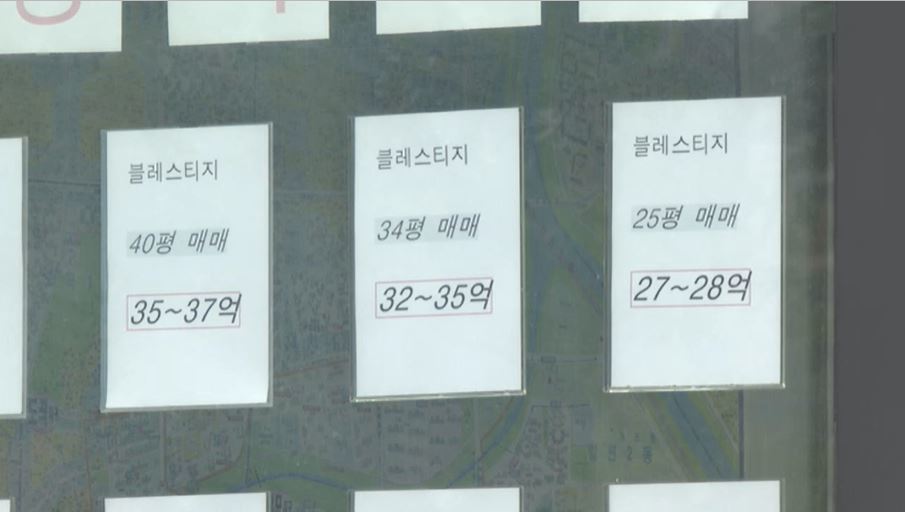 블레스티지
40평 매매
35~37억
블레스티지
34평 매매
32~35억
블레스티지
25평 매매
27~28억